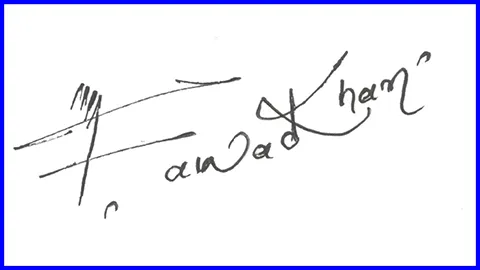 Fawad Khan